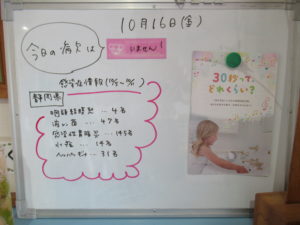 10月16日(金)
今日の病欠は
いません!
感染症情報(10/5~10/11)
静岡県
咽頭結膜熱…4名
溶連菌…47名
感染性胃腸炎…145名
水痘…14名
ヘルパンギーナ…31名
30秒って、
どれくらい?